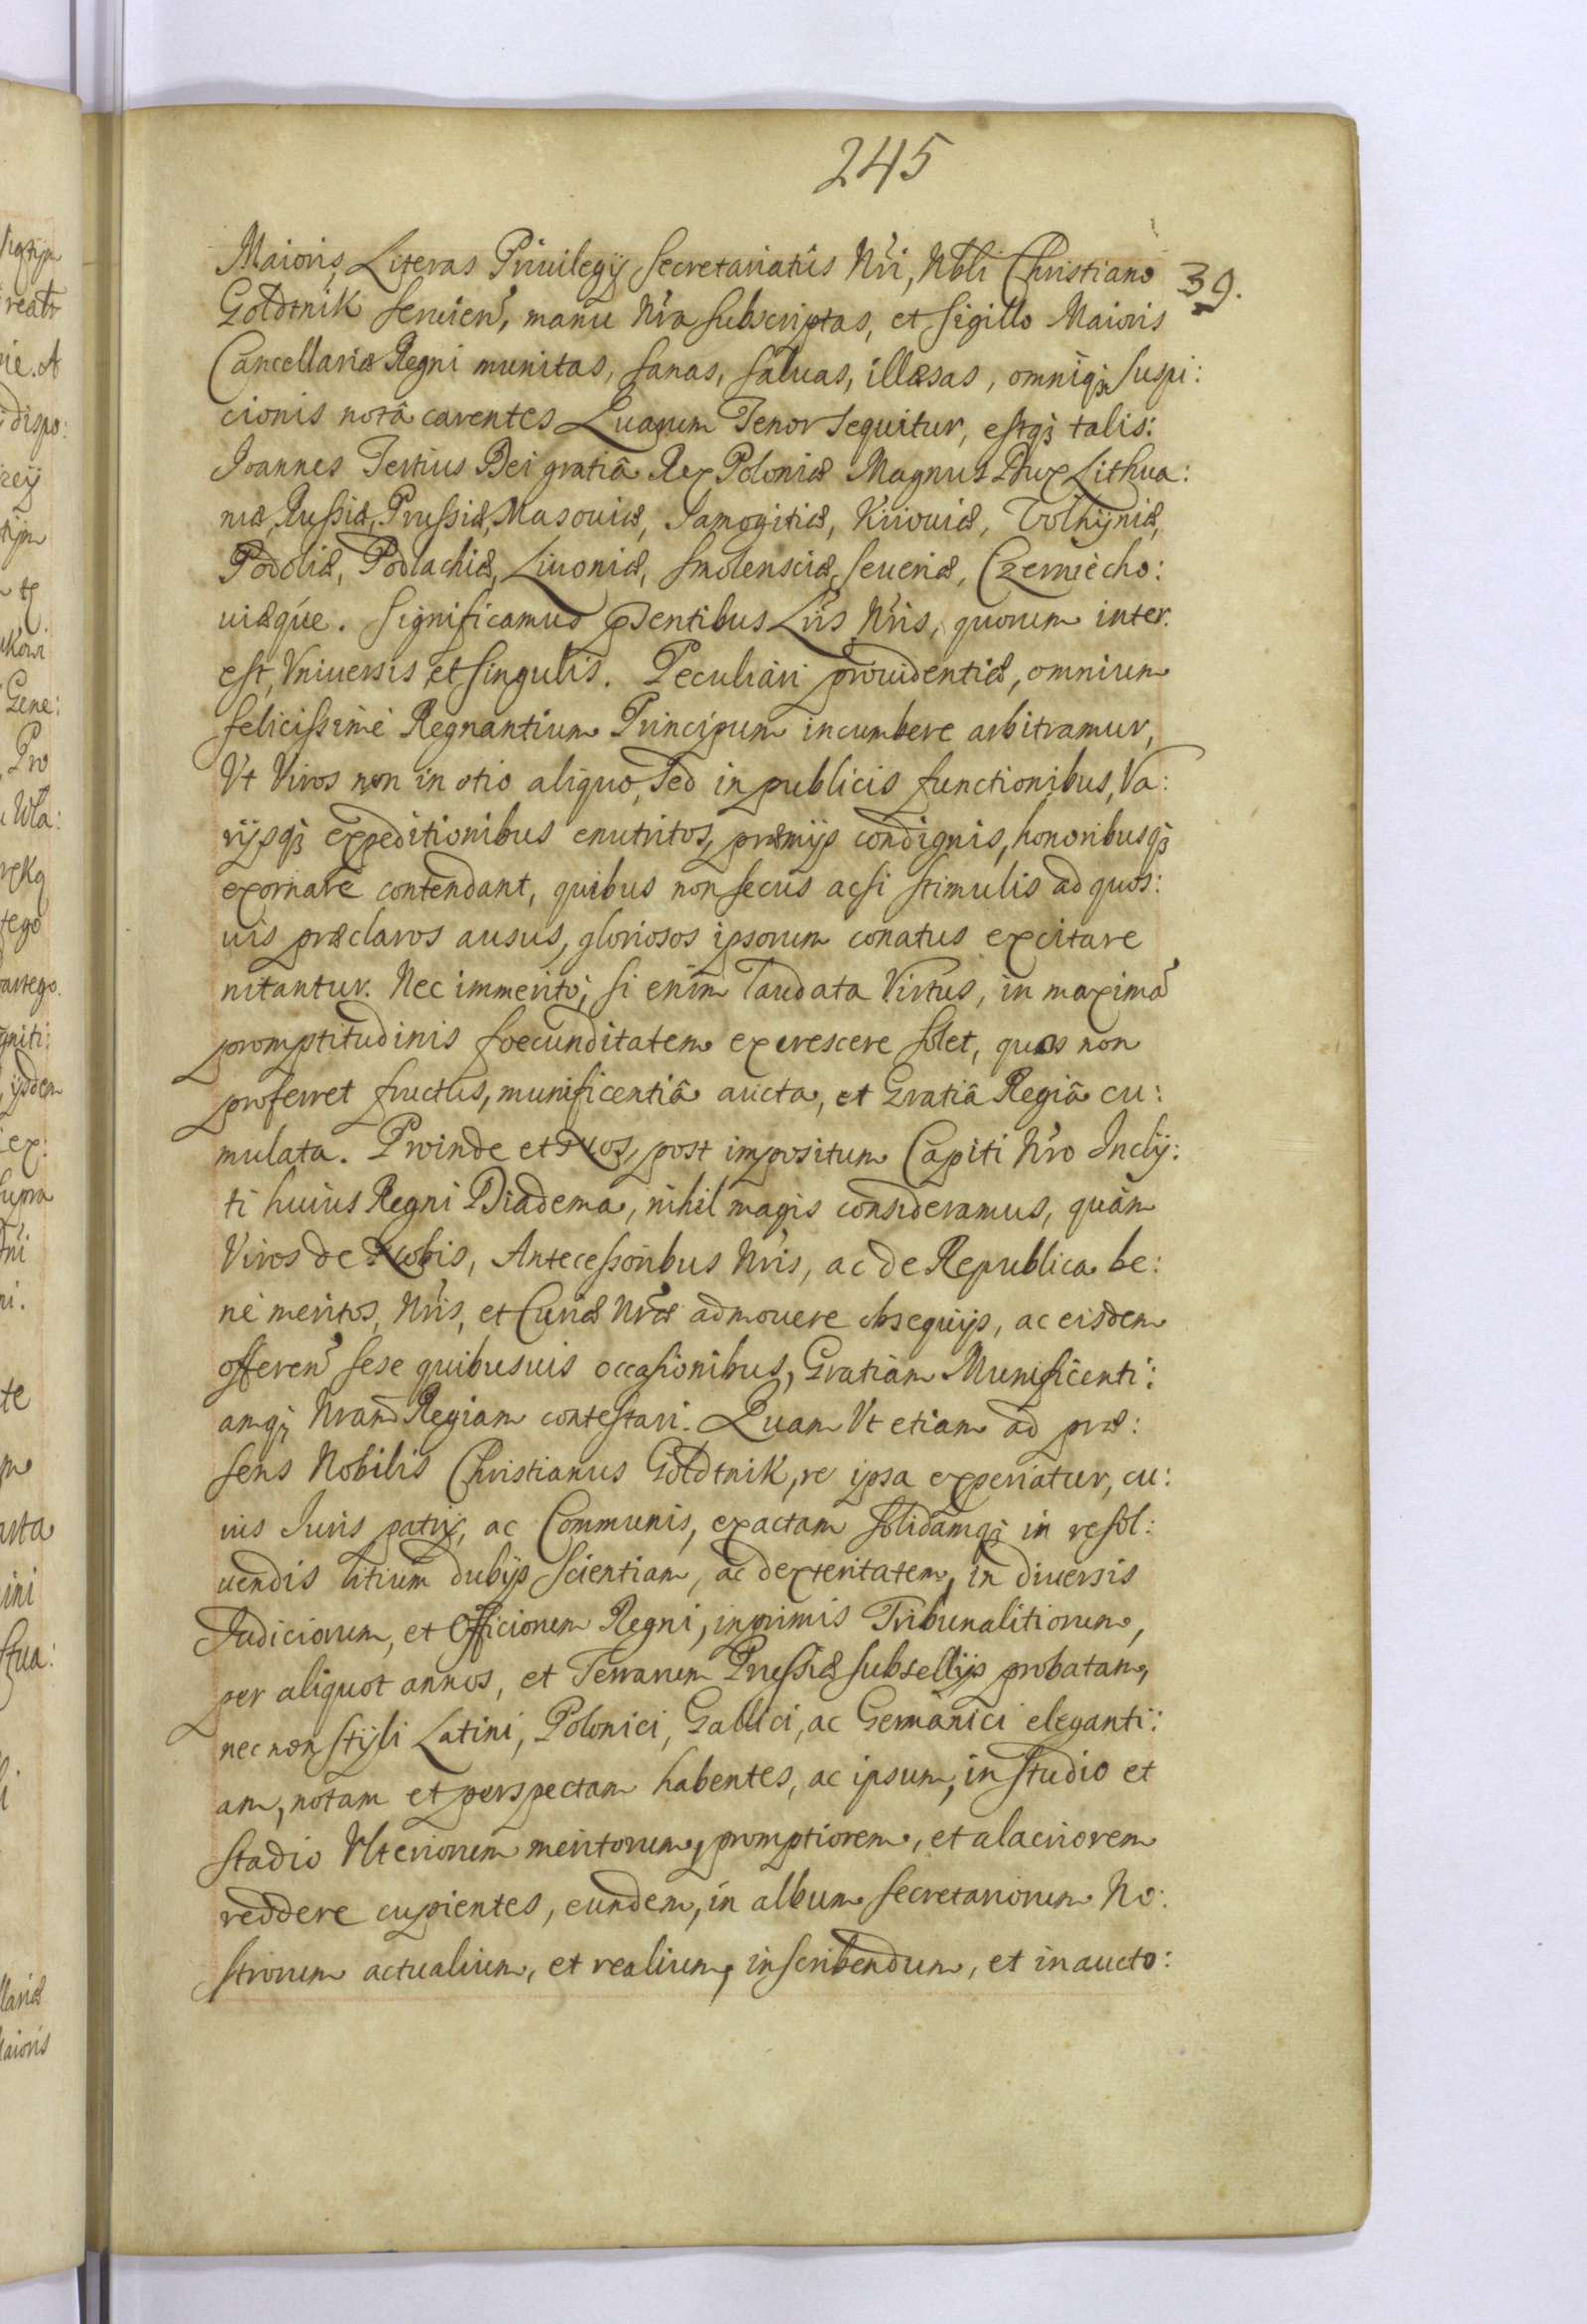 245
39.
Maioris Literas Priuilegij Secretariatûs Nri, Nbli Christiano
Goldtnik seruien, manu Nra subscriptas, et Sigillo Maioris
Cancellariæ Regni munitas, sanas, saluas, illæsas, omniq; suspi:
cionis notâ carentes Quarum Tenor sequitur, estq; talis:
Joannes Tertius Dei gratiâ Rex Poloniæ Magnus Dux Lithua:
niæ, Russiæ, Prussiæ, Masouiæ, Samogitiæ, Kijouiæ, Volhyniæ,
Podoliæ, Podlachiæ, Liuoniæ, Smolensciæ, Seueriæ, Czerniecho:
uiæque. Significamus pntibus Lris Nris, quorum inter:
est, Vniuersis et singulis. Peculiari prouidentiæ, omnium
felicissimè Regnantium Principum incumbere arbitramur,
Vt Viros non in otio aliquo, sed in publicis functionibus, Va:
rijsq; expeditionibus enutritos, præmijs condignis, honoribusq;
exornare contendant, quibus non secus acsi stimulis ad quos:
uis præclaros ausus, gloriosos ipsorum conatus excitare
nitantur. Nec immeritò, si enim laudata Virtus, in maximã
promptitudinis foecunditatem excrescere solet, quos non
proferret fructus, munificentiâ aucta, et Gratiâ Regiâ cu:
mulata. Proinde et Nos, post impositum Capiti Nro Incly:
ti huius Regni Diadema, nihil magis consideramus, quàm
Viros de Nobis, Antecessoribus Nris, ac de Republica be:
nè meritos, Nris, et Curiæ Nræ admouere obsequijs, ac eisdem
offeren sese quibusuis occasionibus, Gratiam Munificenti:
amq; Nram Regiam contestari. Quam Vt etiam ad præ:
sens Nobilis Christianus Goldtnik, re ipsa experiatur, cu:
ius Iuris patrij, ac Communis, exactam solidamq; in resol:
uendis litium dubijs scientiam, ac dexteritatem, in diuersis
Judiciorum, et Officiorum Regni, inprimis Tribunalitiorum,
per aliquot annos, et Terrarum Prussiæ subsellijs probatam,
nec non styli Latini, Polonici, Gallici, ac Germanici eleganti:
am, notam et perspectam habentes, ac ipsum, in studio et
stadio Vlteriorum meritorum, promptiorem, et alacriorem
reddere cupientes, eundem, in album Secretariorum No:
strorum actualium, et realium, inscribendum, et in aucto: